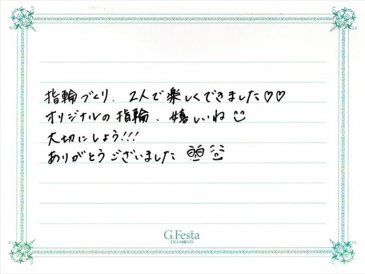 指輪づくり、2人で楽しくできました♡♡
オリジナルの指輪、嬉しいね
大切にしよう!!!
ありがとうございました
G.Festa
DIAMOND